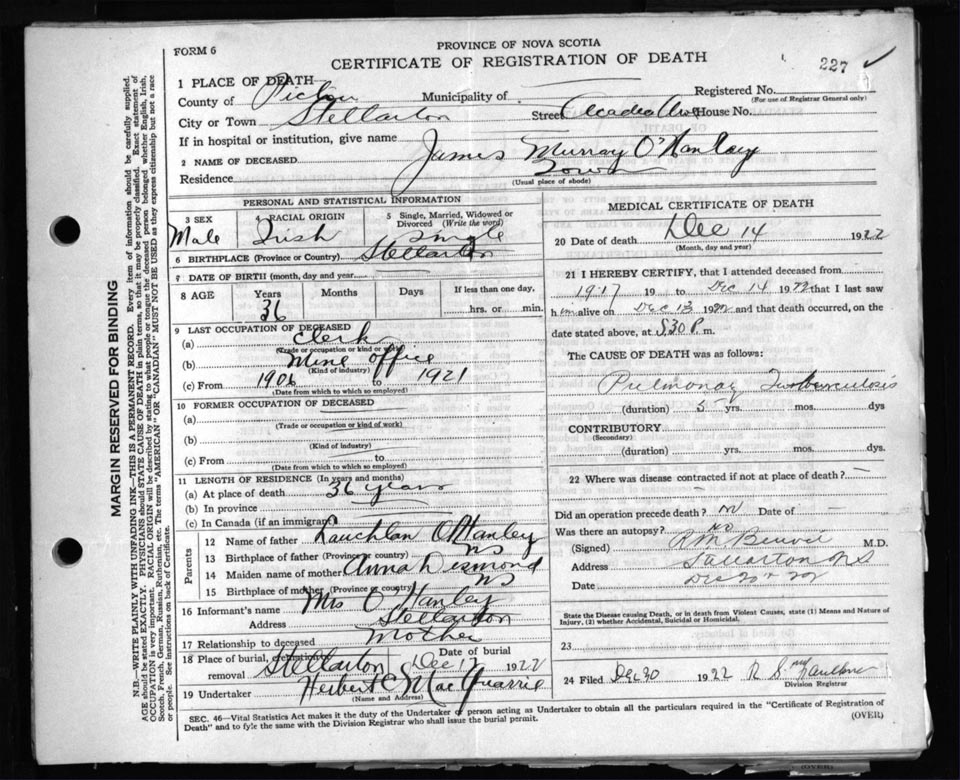 PROVINCE OF NOVA SCOTIA
FORM 6
CERTIFICATE OF REGISTRATION OF DEATH
227 ✓
1 PLACE OF DEATH
Registered No.
(For use of Registrar General only)
County of Pictou Municipality of
City or Town Stellarton Street Acadia Ave House No.
If in hospital or institution, give name
2 NAME OF DECEASED James Murray O'Hanley
Residence Town
(Usual place of abode)
PERSONAL AND STATISTICAL INFORMATION
3 SEX Male
4 RACIAL ORIGIN Irish
5 Single, Married, Widowed or Divorced (Write the word) Single
6 BIRTHPLACE (Province or Country) Stellarton
7 DATE OF BIRTH (month, day and year)
8 AGE Years 36 Months Days If less than one day, hrs. or min.
9 LAST OCCUPATION OF DECEASED
(a) Clerk
(Trade or occupation or kind of work)
(b) Mine office
(Kind of industry)
(c) From 1906 to 1921
(Date from which to which so employed)
10 FORMER OCCUPATION OF DECEASED
(a)
(Trade or occupation or kind of work)
(b)
(Kind of industry)
(c) From to
(Date from which to which so employed)
11 LENGTH OF RESIDENCE (In years and months)
(a) At place of death 36 years
(b) In province
(c) In Canada (if an immigrant)
Parents
12 Name of father Lauchlan O'Hanley
13 Birthplace of father (Province or country) NS
14 Maiden name of mother Anna Desmond
15 Birthplace of mother (Province or country) NS
16 Informant's name Mrs O'Hanley
Address Stellarton
17 Relationship to deceased Mother
18 Place of burial, cremation or removal Stellarton Date of burial Dec 17 1922
19 Undertaker Herbert C MacQuarrie
(Name and Address)
MEDICAL CERTIFICATE OF DEATH
20 Date of death Dec 14 1922
(Month, day and year)
21 I HEREBY CERTIFY, that I attended deceased from
1917 19 to Dec 14 1922 that I last saw
him alive on Dec 13 1922 and that death occurred, on the
date stated above, at 530 P. m.
The CAUSE OF DEATH was as follows:
Pulmonary Tuberculosis
(duration) 5 yrs. mos. dys
CONTRIBUTORY
(Secondary)
(duration) yrs. mos. dys.
22 Where was disease contracted if not at place of death? —
Did an operation precede death? No Date of —
Was there an autopsy? No
(Signed) M.D.
Address Stellarton N.S
Date Dec 22
State the Disease causing Death, or in death from Violent Causes, state (1) Means and Nature of
Injury, (2) whether Accidental, Suicidal or Homicidal.
23
24 Filed Dec 30 1922 R S
Division Registrar
SEC. 46—Vital Statistics Act makes it the duty of the Undertaker or person acting as Undertaker to obtain all the particulars required in the "Certificate of Registration of
Death" and to fyle the same with the Division Registrar who shall issue the burial permit.
(OVER)
MARGIN RESERVED FOR BINDING
N.B.—WRITE PLAINLY WITH UNFADING INK—THIS IS A PERMANENT RECORD. Every item of information should be carefully supplied.
AGE should be stated EXACTLY. PHYSICIANS should STATE CAUSE OF DEATH in plain terms, so that it may be properly classified. Exact statement of
OCCUPATION is very important. RACIAL ORIGIN will be described by stating to what people or tongue the deceased person belonged whether English, Irish,
Scotch, French, German, Russian, Ruthenian, etc. The terms "AMERICAN" OR "CANADIAN" MUST NOT BE USED as they express citizenship but not a race
or people. See instructions on back of Certificate.
(OVER)